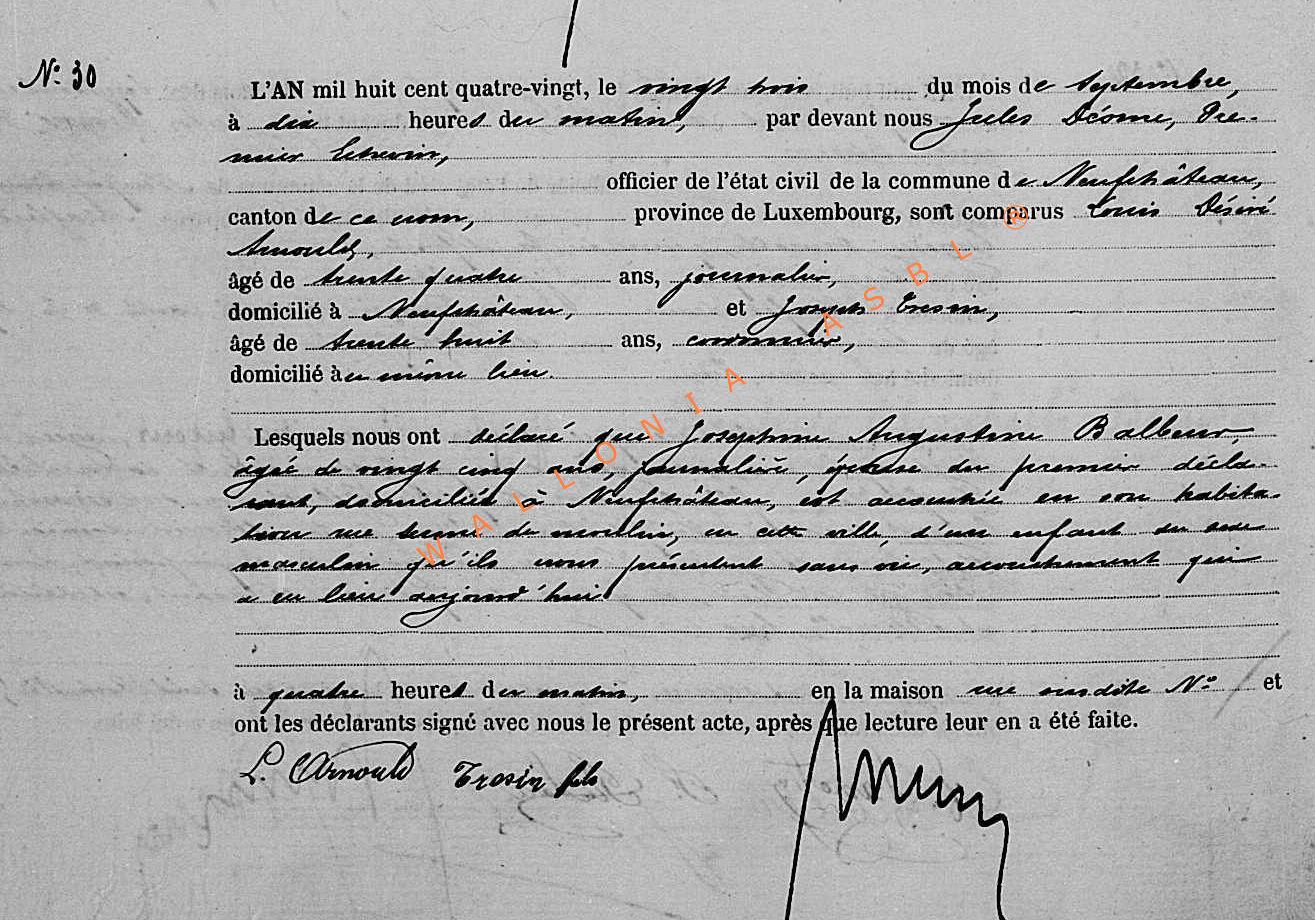 N° 30
L'AN mil huit cent quatre-vingt, le vingt trois du mois de Septembre,
à dix heures du matin, par devant nous Jules Déome, Pre-
mier Echevin,
officier de l'état civil de la commune de Neufchâteau,
canton de ce nom, province de Luxembourg, sont comparus Louis Désiré
Arnould,
âgé de trente quatre ans, journalier,
domicilié à Neufchâteau, et Joseph Tresin,
âgé de trente huit ans, cordonnier,
domicilié au même lieu.
Lesquels nous ont déclaré que Joséphine Augustine Balbeur,
âgée de vingt cinq ans, journalière, épouse du premier décla-
rant, domiciliée à Neufchâteau, est accouchée en son habita-
tion rue du moulin, en cette ville, d'un enfant du sexe
masculin qu'ils nous présentent sans vie, accouchement qui
a eu lieu aujourd'hui
à quatre heures du matin, en la maison rue susdite N° et
ont les déclarants signé avec nous le présent acte, après que lecture leur en a été faite.
L. Arnould Tresin fils
WALLONIA ASBL ®